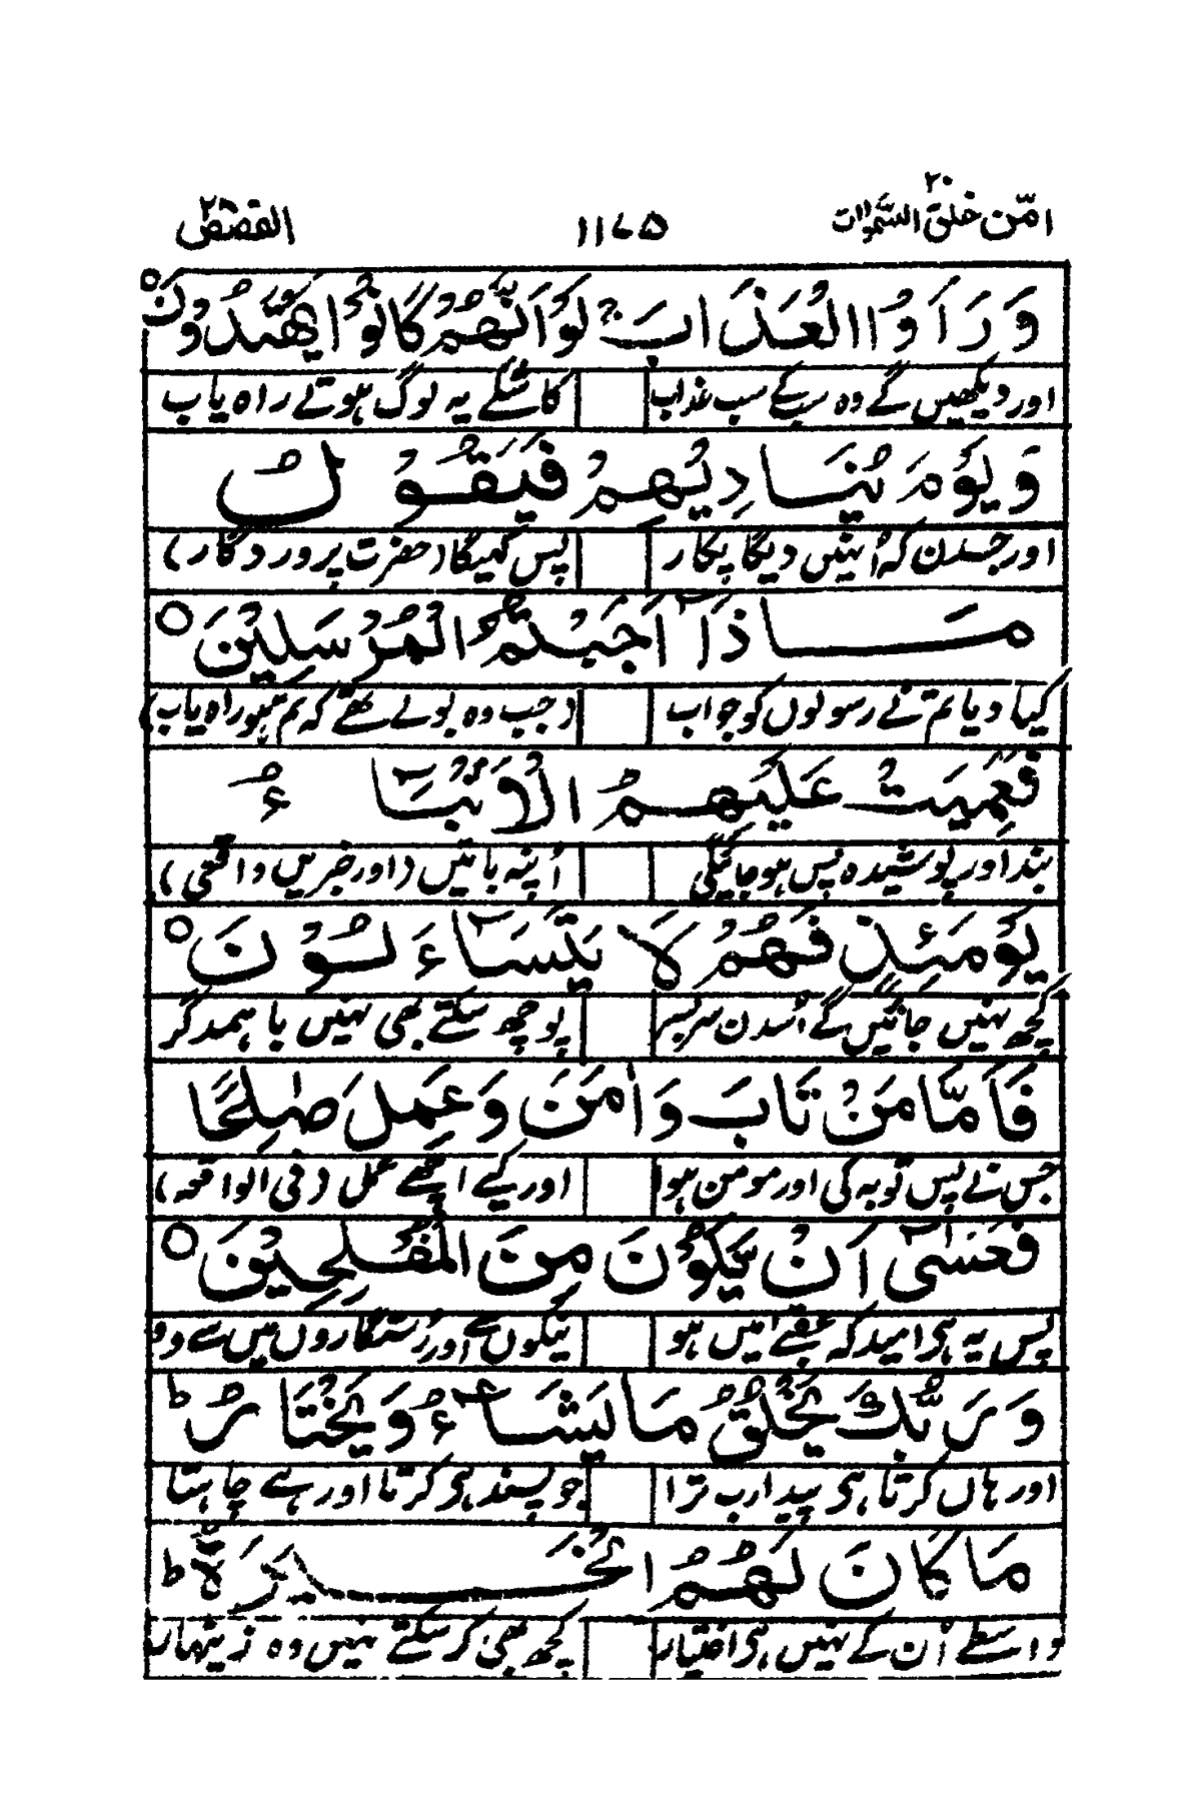 امّن خلق السّمٰوٰات ۲۰ ۱۱۷۵ القصص ۲۸
وَرَاَوُا الْعَذَابَ ۚ لَوْ اَنَّهُمْ كَانُوْا يَهْتَدُوْنَ ○
اور دیکھیں گے وہ سب کے سب عذاب کاشکے یہ لوگ ہوتے راہ یاب
وَيَوْمَ يُنَادِيْهِمْ فَيَقُوْلُ
اور جسدن کہ اُنہیں دیگا پکار پس کہیگا (حضرت پروردگار)
مَاذَآ اَجَبْتُمُ الْمُرْسَلِيْنَ ○
کیا دیا تم نے رسولوں کو جواب (جب وہ بولے تھے کہ تم ہو راہ یاب)
فَعَمِيَتْ عَلَيْهِمُ الْاَنْۢبَآءُ
بند اور پوشیدہ پس ہو جائیگی اُنپہ باتیں (اور خبریں واقعی)
يَوْمَئِذٍ فَهُمْ لَا يَتَسَآءَلُوْنَ ○
کچھ نہیں جائیں گے اُسدن سربسر پوچھ سکتے بھی نہیں باہمدگر
فَاَمَّا مَنْ تَابَ وَاٰمَنَ وَعَمِلَ صٰلِحًا
جس نے پس توبہ کی اور مومن ہوا اور کیے اچھے عمل (فی الواقعہ)
فَعَسٰٓى اَنْ يَّكُوْنَ مِنَ الْمُفْلِحِيْنَ ○
پس یہ ہی امید کہ عقبےٰ میں ہو نیکوں سے اور رستگاروں میں سے وہ
وَرَبُّكَ يَخْلُقُ مَا يَشَآءُ وَيَخْتَارُ ؕ
اور ہاں کرتا ہی پیدا رب ترا جو پسند ہی کرتا اور ہے چاہتا
مَا كَانَ لَهُمُ الْخِيَرَةُ ؕ
واسطے اُن کے نہیں ہی اختیار کچھ بھی کر سکتے نہیں وہ زینہار